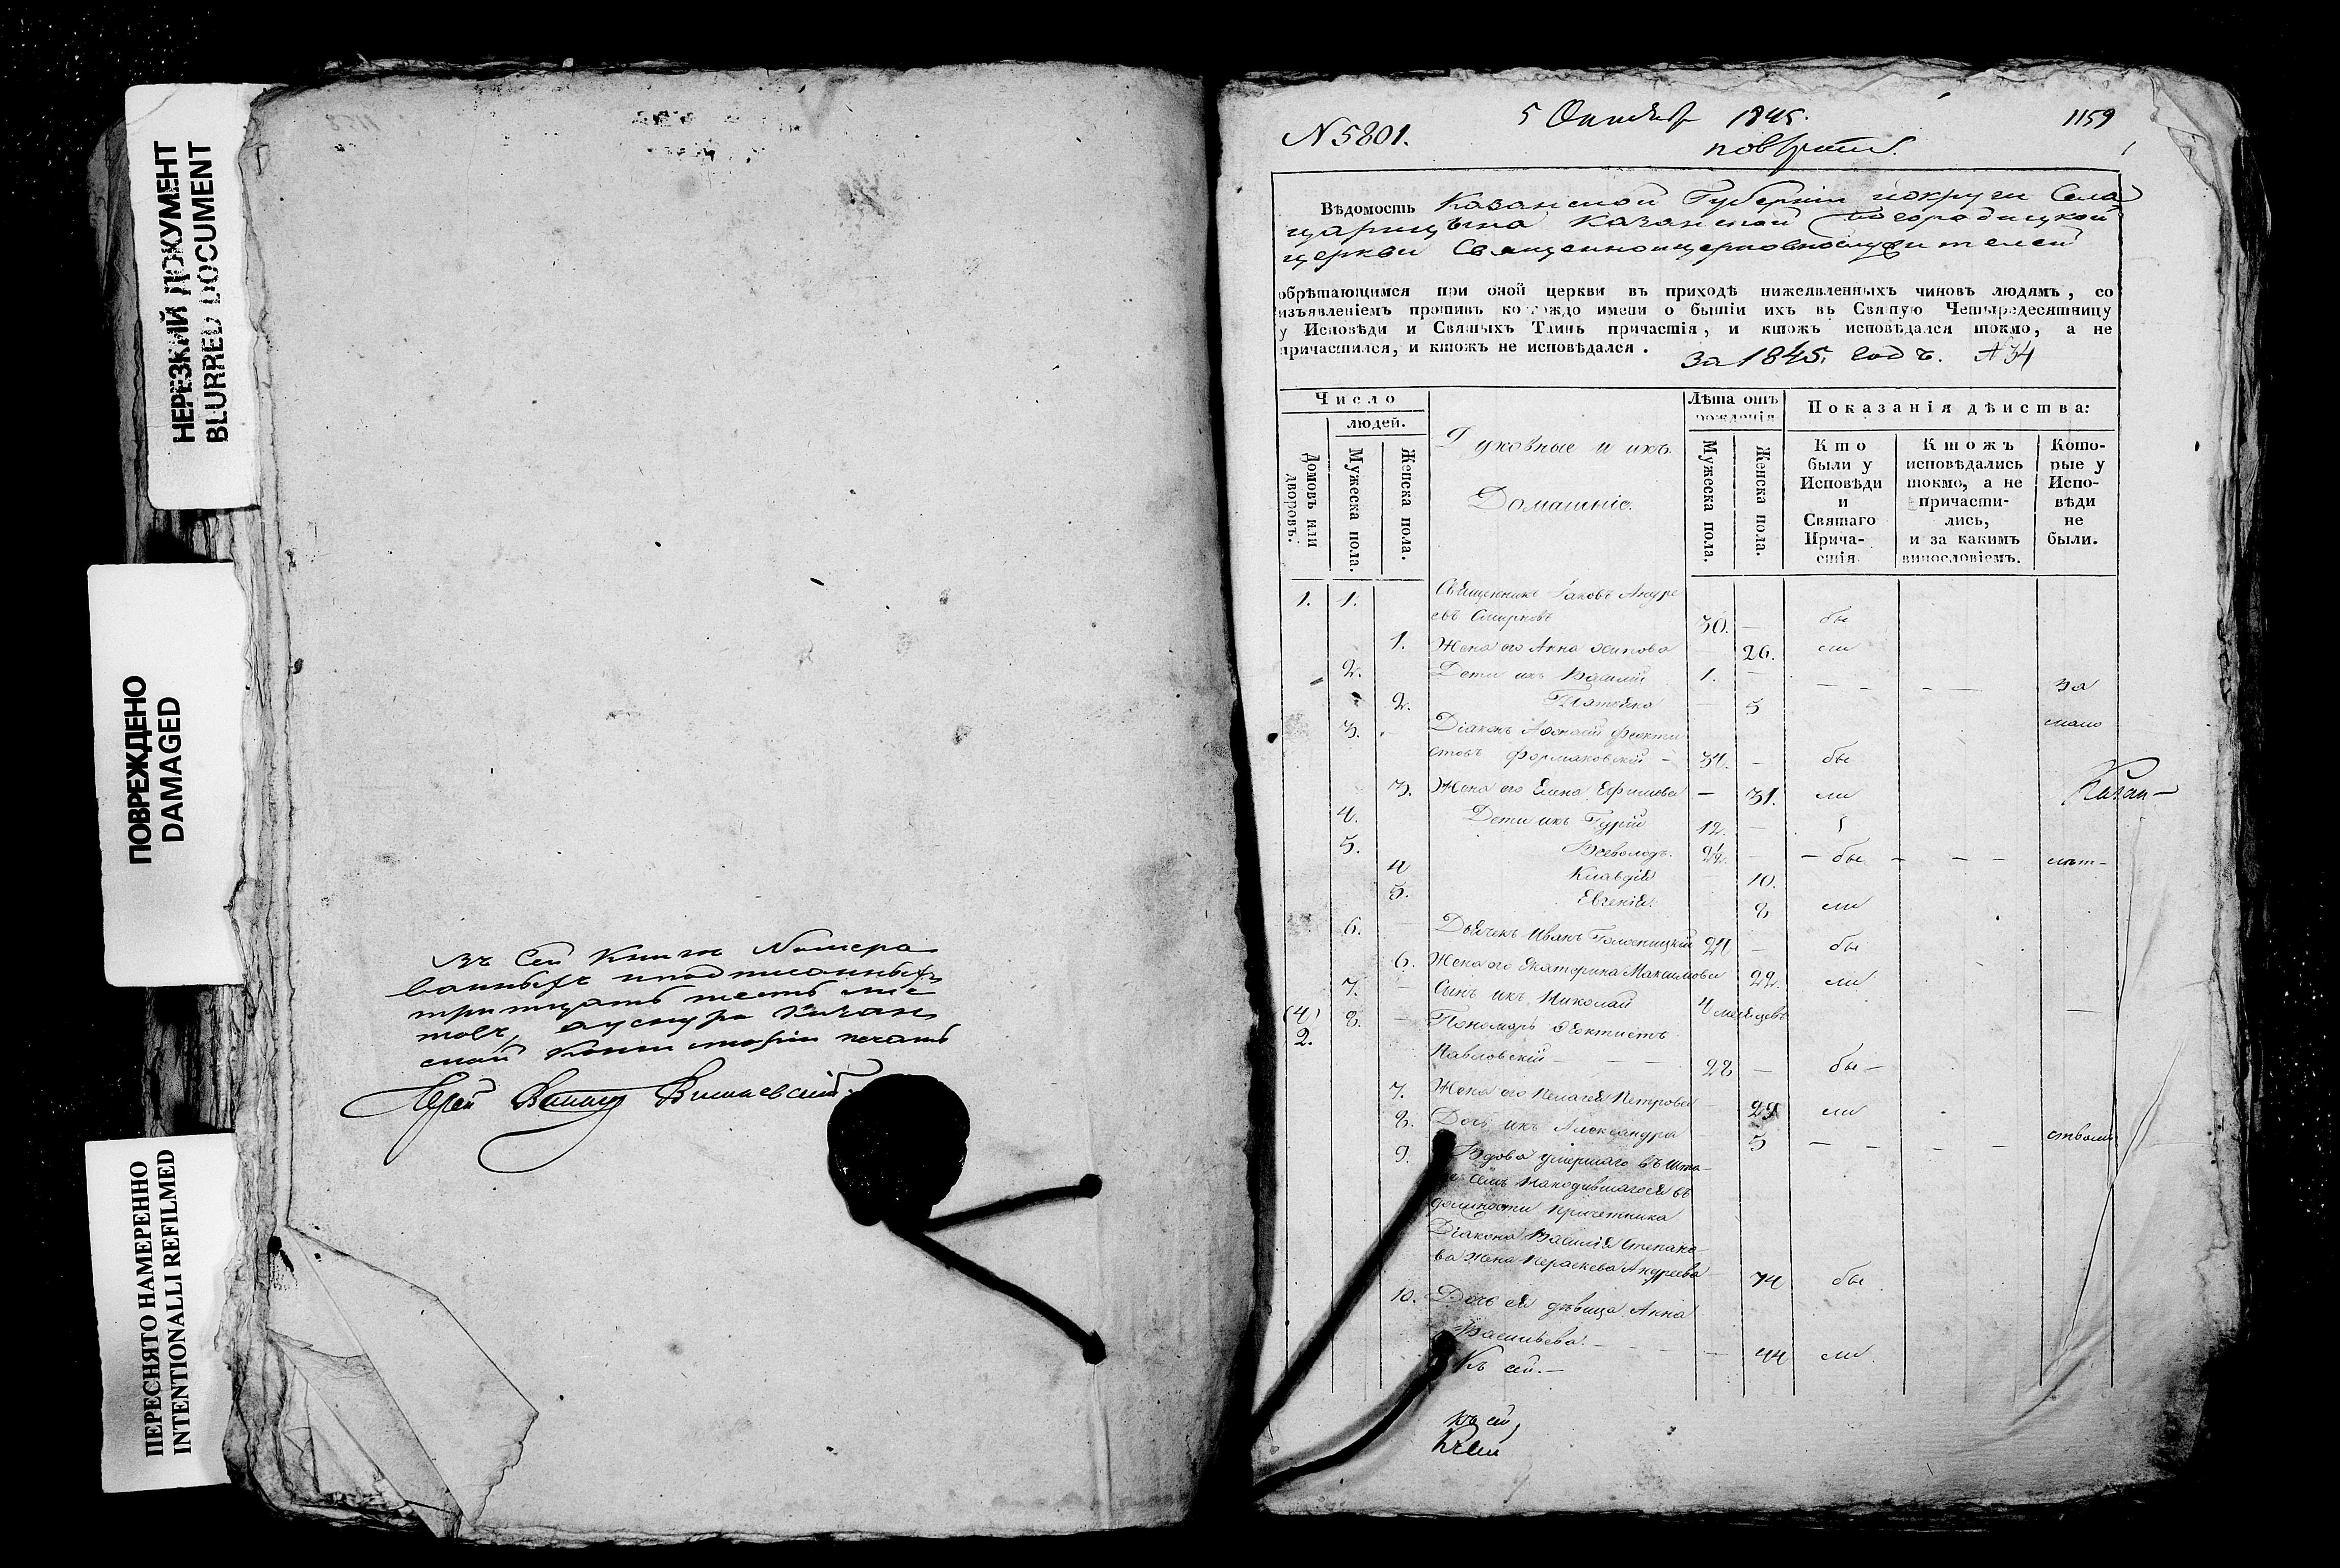 НЕРЕЗКИЙ ДОКУМЕНТ
BLURRED DOCUMENT
ПОВРЕЖДЕНО
DAMAGED
ПЕРЕСНЯТО НАМЕРЕННО
INTENTIONALLI REFILMED
Въ Сей Книгѣ Номера
тритцать шесть лис
товъ,
ской Консисторіи печать
Іерей Вишневскій
N 5801.
5 Октября 1845.
1159
Вѣдомость Казанской Губерніи и округи Села
Царицына Казанской Богородицкой
церкви Священноцерковнослужителей
обрѣтающимся при оной церкви въ приходѣ нижеявленныхъ чиновъ людямъ, со
изъявленіемъ противъ коегождо имени о бытіи ихъ въ Святую Четыредесятницу
у Исповѣди и Святыхъ Таинъ причастія, и ктожъ исповѣдался токмо, а не
причастился, и ктожъ не исповѣдался.
за 1845. годъ. N 34
Число
людей.
Домовъ или дворовъ.
Мужеска пола.
Женска пола.
Духовные и ихъ
Домашніе.
Лѣта отъ рожденія
Мужеска пола.
Женска пола.
Показанія дѣйства:
Кто были у Исповѣди и Святаго Причастія
Ктожъ исповѣдались токмо, а не причастились, и за какимъ винословіемъ.
Которые у Исповѣди не были.
1. 1. Священникъ Іаковъ Андре
евъ Смирновъ 30. — бы
1. Жена его Анна Осипова 26. ли
2. Дети ихъ Василій 1. — за
2. 5
мало
3. Діаконъ Афонасій Феокти
стовъ Формаковскій — 34. — бы
3. Жена его Елена Ефимова — 31. ли
Казан—
4. Дети ихъ Гурій 12. —
5. Всеволодъ. — бы — — — лѣт—
4 Клавдія 10.
5. Евгенія. 8 ли
6. Дьячекъ Иванъ 24 — бы
6. Жена его Екатерина Максимова 22. ли
7. Сынъ ихъ Николай 4 месяцевъ —
(4) 2. 8. Пономарь Феоктистъ
Павловскій — — — 28 — бы —
7. Жена его Пелагея Петрова 29 ли
8. Дочь ихъ Александра 5 — — — — ствомъ
9. Вдова умершаго въ шта—
находившагося въ
должности причетника
Діакона Василія Степано—
ва жена Пераскева Андреева 74 бы
10. Дочь ея дѣвица Анна
Васильева. — — — — 44 ли.
Къ сей.—
къ сей,